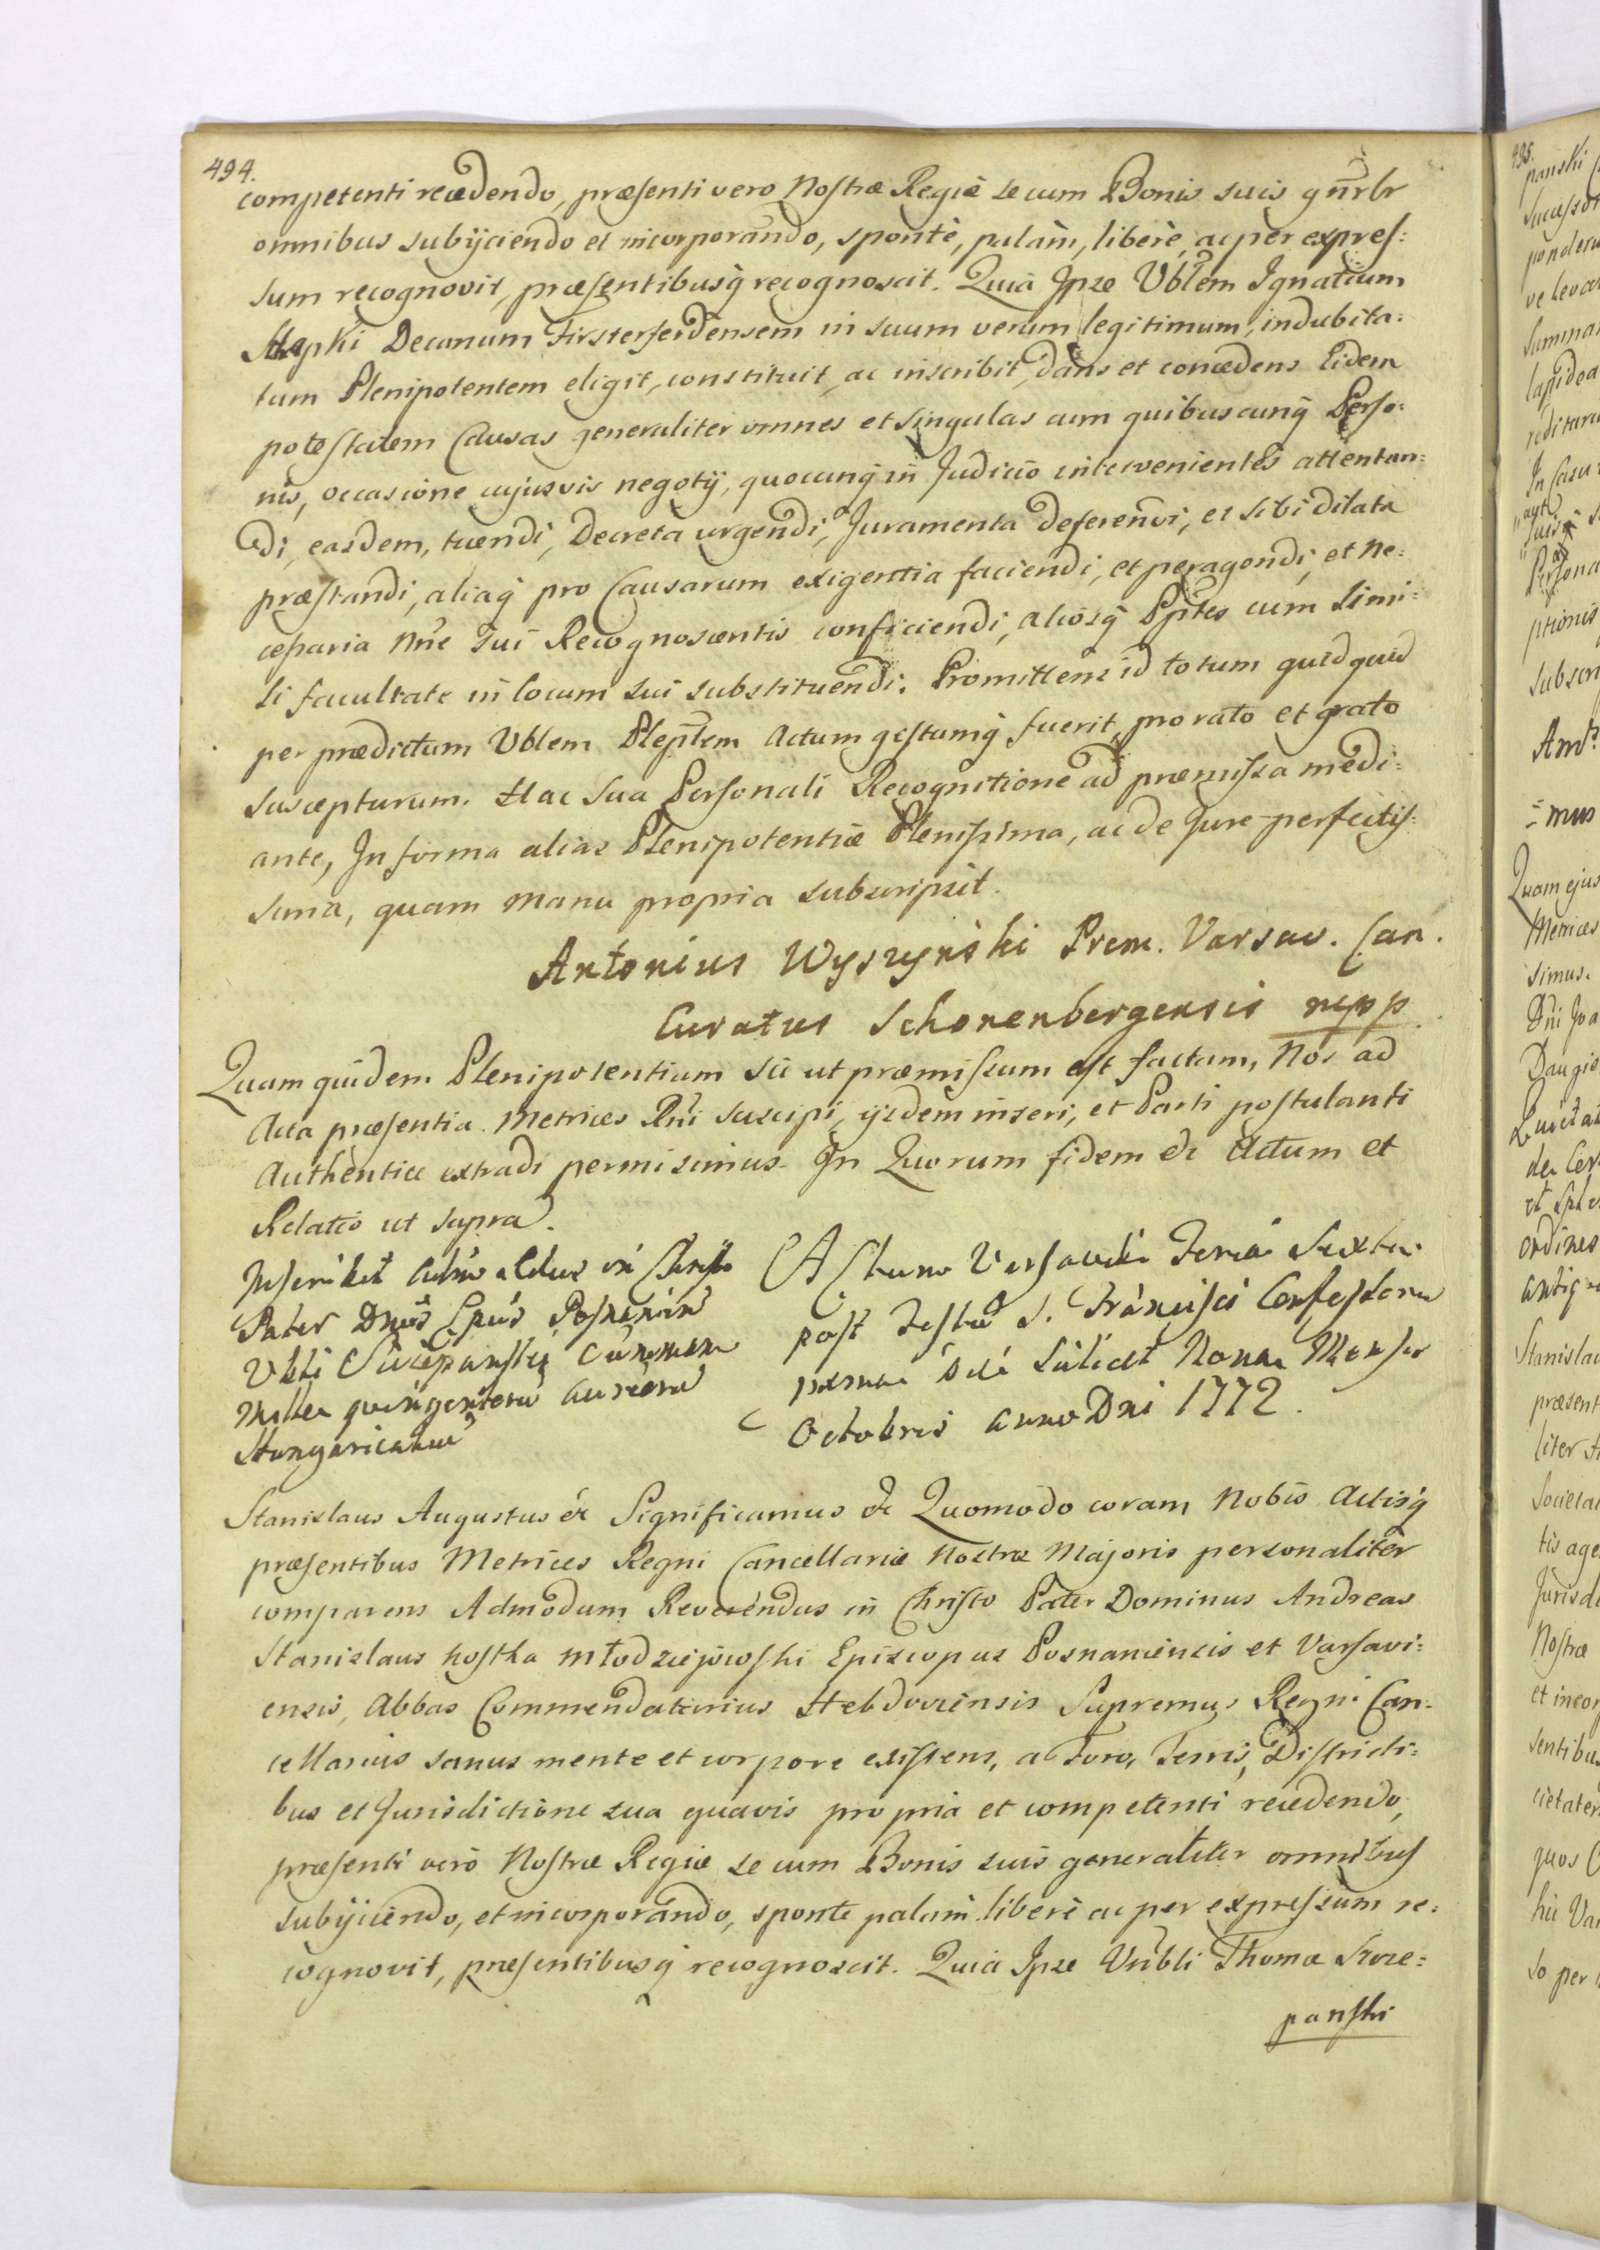 494.
competenti recedendo, præsenti vero Nostræ Regiæ se cum Bonis suis gn̄rlr
omnibus subijciendo et incorporando, sponte, palàm, liberè, ac per expres:
sum recognovit, præsentibusq́ recognoscit. Quià Ipse Vblem Ignatium
Decanum in suum verum legitimum, indubita:
tum Plenipotentem eligit, constituit, ac inscribit, dans et concedens Eidem
potestatem Causas generaliter omnes et singulas cum quibuscunq́ Perso:
nis, occasione cujusvis negotÿ, quocunq́ in Judicio intervenientes attentan:
di, easdem, tuendi, Decreta urgendi, Juramenta deferendi, et sibi dilata
præstandi, aliaq́ pro Causarum exigentia faciendi, et peragendi, et ne:
cessaria Nn̄e sui Recognoscentis conficiendi, aliosq́ Pptes cum simi:
li facultate in locum sui substituendi. Promittens id totum quidquid
per prædictum Vblem Pleptem Actum gestumq́ fuerit, pro rato et grato
suscepturum. Hac sua Personali Recognitione ad præmissa medi:
ante, In forma alias Plenipotentiæ Plenissima, ac de Jure perfectis:
sima, quam manu propria subscripsit.
Antonius Wyszyński Prem. Varsav. Can.
Curatus Schonenbergensis mpp
Quam quidem Plenipotentiam sic ut præmissum est factam, Nos ad
Acta præsentia Metrices Rni suscipi, ijsdem inseri, et Parti postulanti
Authentice extradi permisimus. In Quorum fidem &c Actum et
Relatio ut supra.
Inseribit Christo
Pater Dnūs Epūs Posnanien
Vbli Szczepanski summam
Mille quingentorū aureorū
Hungaricalium
Actum Varsaviæ Feria Sexta
post Festū S. Francisci Confessoris
proxima die scilicet Nona Mensis
Octobris anno Dni 1772.
Stanislaus Augustus &c Significamus &c Quomodo coram Nobis Actisq́
præsentibus Metrices Regni Cancellariæ Nostræ Majoris personaliter
comparens Admodum Reverendus in Christo Pater Dominus Andreas
Stanislaus Kostka Młodziejowski Episcopus Posnaniensis et Varsavi:
ensis, Abbas Commendatarius Hebdoviensis Supremus Regni Can:
cellarius sanus mente et corpore existens, a Foro, Terris, Districti:
bus et Jurisdictione sua quavis propria et competenti recedendo,
præsenti verò Nostræ Regiæ se cum Bonis suis generaliter omnibus
subijciendo, et incorporando, sponte palam liberè ac per expressum re:
cognovit, præsentibusq́ recognoscit. Quia Ipse Vrībli Thomæ Szcze:
panski